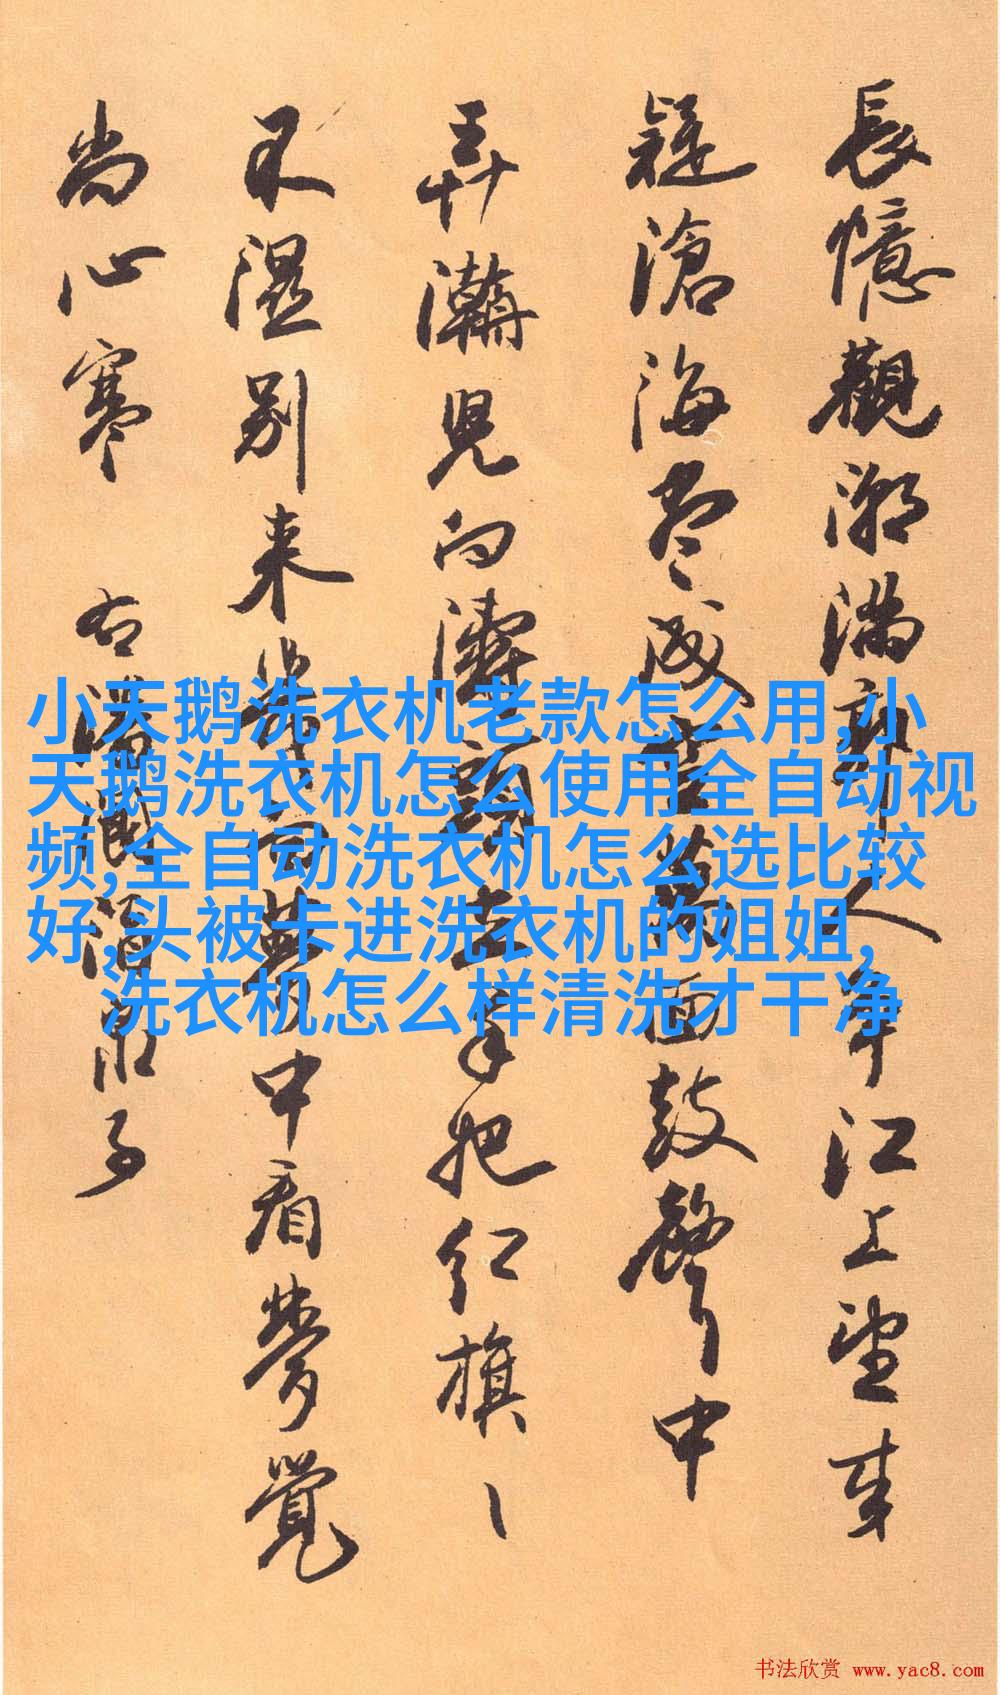 長憶觀潮滿郭人争江上望来
疑滄海尽成空萬面鼓聲中
弄潮児向濤頭立手把红旗〻
不濕别来幾向夢中看夢覺
尚心寒 右潘閬酒泉子
小天鹅洗衣机老款怎么用,小
天鹅洗衣机怎么使用全自动视
频,全自动洗衣机怎么选比较
好,头被卡进洗衣机的姐姐,
洗衣机怎么样清洗才干净
书法欣赏 www.yac8.com